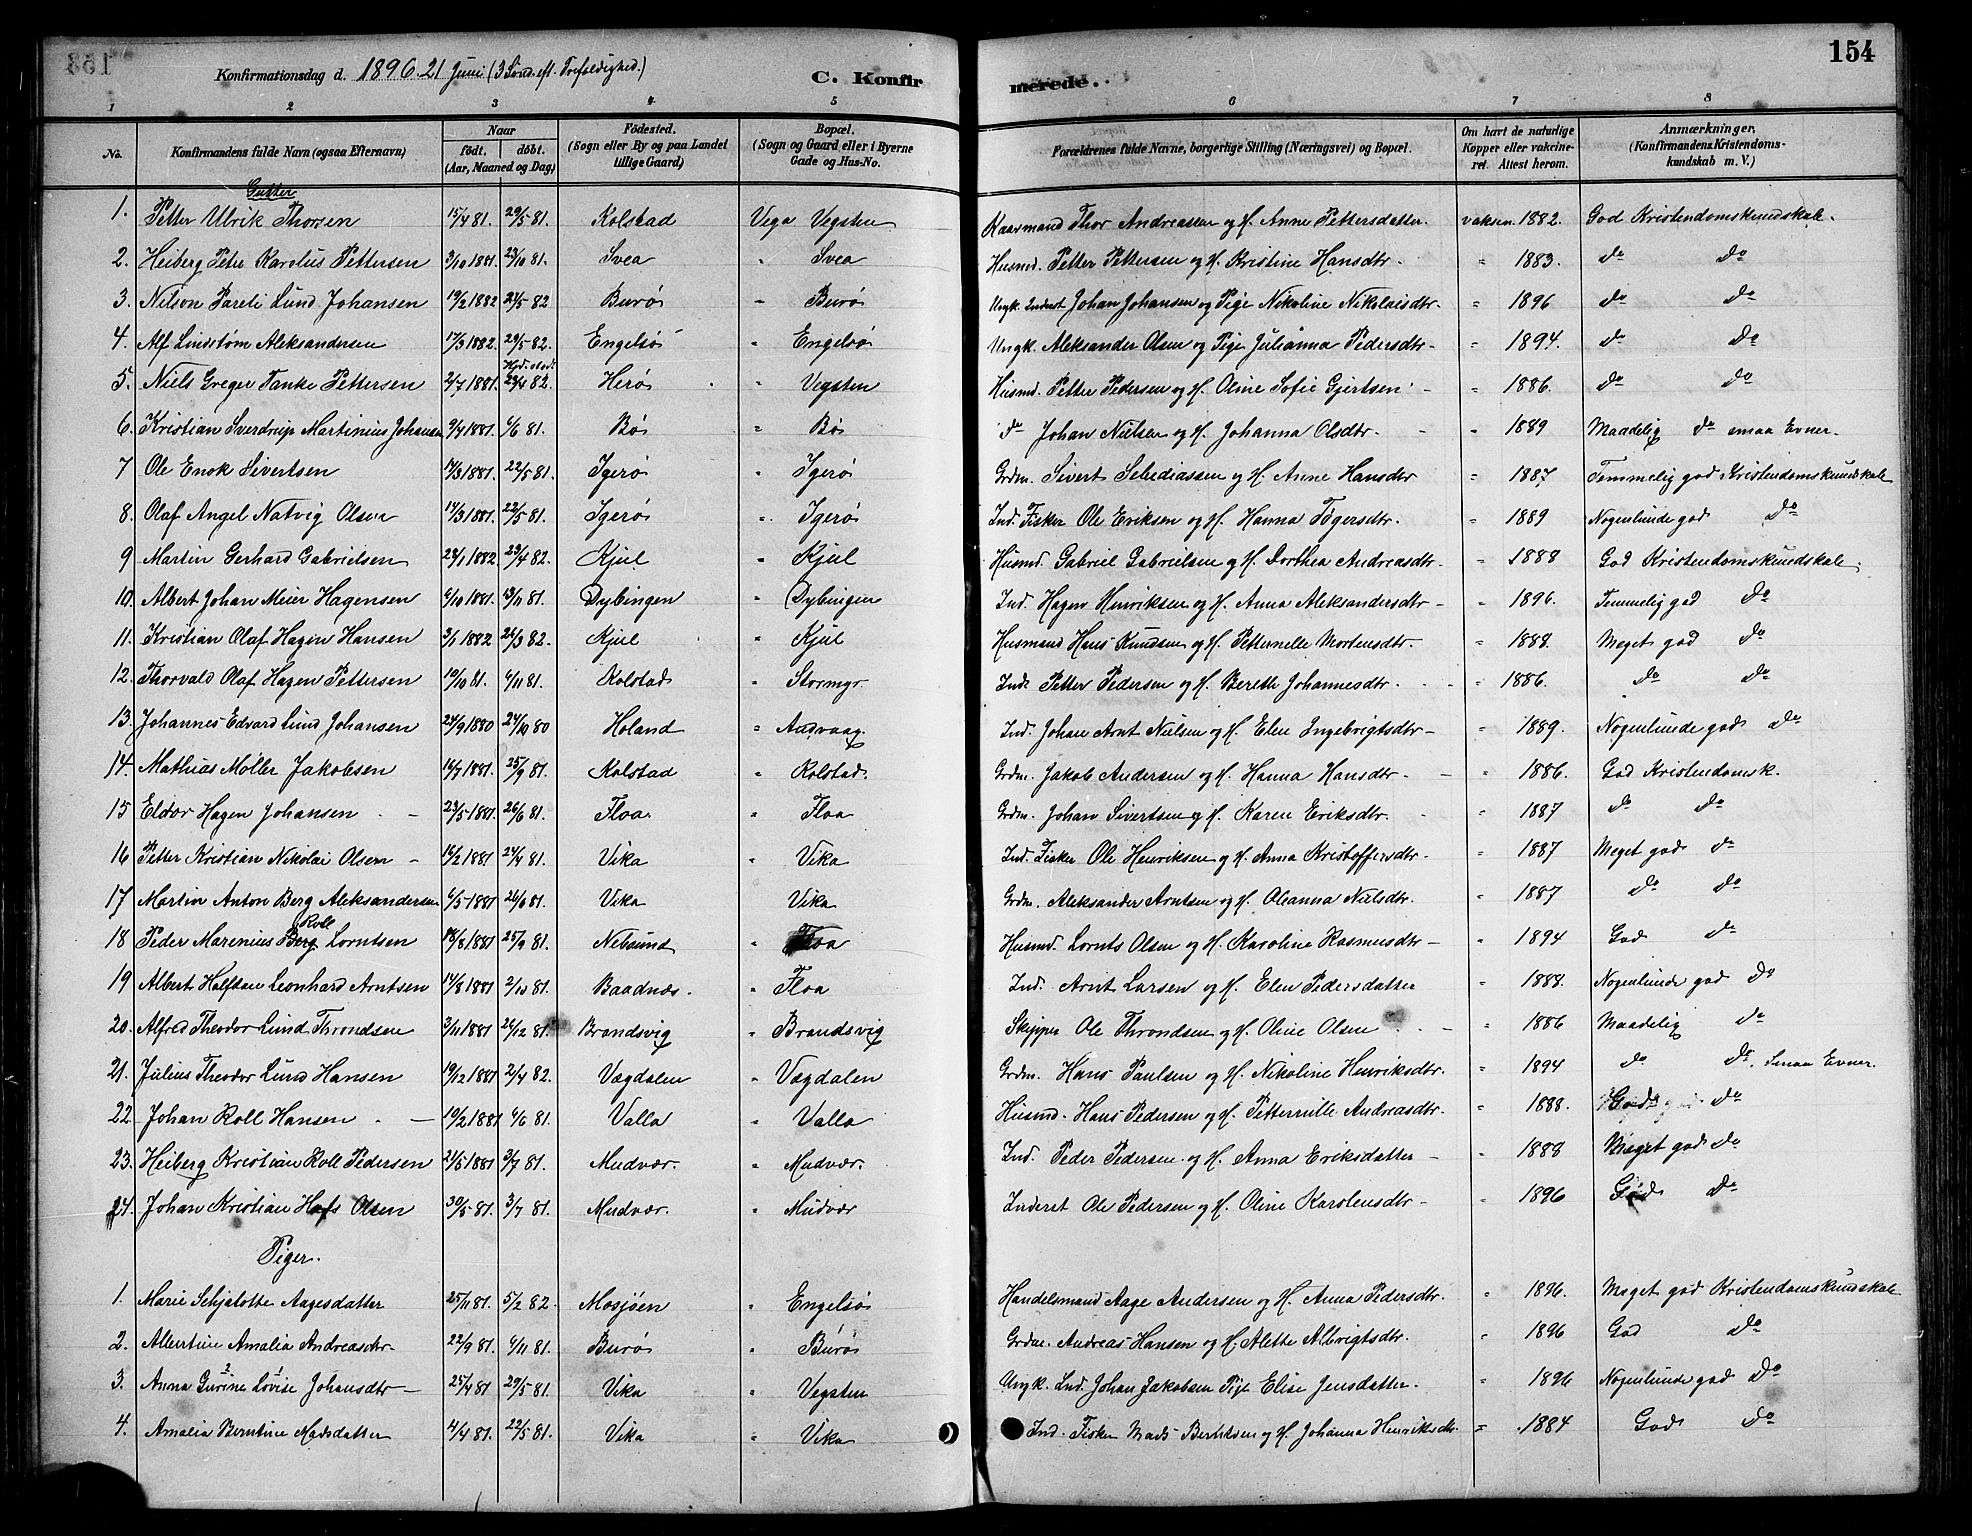 154
Konfirmationsdag d. 1896. 21 Juni (3 Sønd. eft. Trefoldighed.) C. Konfirmerede.
1 2 3 4 5 6 7 8
No. Konfirmandens fulde Navn (ogsaa Efternavn) Naar født. døbt. (Aar, Maaned og Dag) Fødested. (Sogn eller By og paa Landet tillige Gaard) Bopæl. (Sogn og Gaard eller i Byerne Gade og Hus-No. Forældrenes fulde Navne, borgerlige Stilling (Næringsvei) og Bopæl. Om havt de naturlige Kopper eller vakcineret. Attest herom. Anmærkninger. (Konfirmandens Kristendomskundskab m. V.)
Gutter
1. Petter Ulrik Thorsen 15/4 81. 29/5 81. Kolstad Vega Vegsten Kaarmand Thor Andreassen og H. Anne Pettersdatter. vaksin. 1882. God Kristendomskundskab.
2. Heiberg Peter Karolus Pettersen 3/10 1881. 23/10 81. Svea " Svea Husmd. Petter Pettersen og H. Kristine Hansdtr. " 1883. do do
3. Nilson Pareli Lund Johansen 19/2 1882 29/5 82. Burø " Burø Ungk. Inderst Johan Johansen og Pige Nikoline Nikolaisdtr. " 1896 do do
4. Alf Lindstøm Aleksandersen 17/3 1882. 29/5 82. Engelsø " Engelsø Ungk. Aleksander Olsen og Pige Julianna Pedersdtr. " 1894. do do
5. Niels Greger Tanke Pettersen 2/7 1881. Hjd. stad. 23/4 82. Herø " Vegsten Husmd. Petter Pedersen og H. Oline Sofie Gjertsen " 1886. do do
6. Kristian Sverdrup Martinius Johansen 9/4 1881. 6/6 81. Bø " Bø do Johan Nielsen og H. Johanna Olsdtr. " 1889 Maadelig do smaa Evner.
7 Ole Enok Sivertsen 17/3 1881. 22/5 81. Igerø " Igerø Grdm. Sivert Sebediassen og H. Anne Hansdtr " 1887 Temmelig god Kristendomskundskab
8. Olaf Angel Natvig Olsen 14/3 1881. 22/5 81. Igerø " Igerø Ind. Fisker Ole Eriksen og H. Hanna Tøgersdtr. " 1889 Nogenlunde god do
9 Martin Gerhard Gabrielsen 28/1 1882 23/4 82. Kjul " Kjul Husmd. Gabriel Gabrielsen og H. Dorthea Andreasdtr. " 1888 God Kristendomskundskab.
10. Albert Johan Meier Hagensen 9/10 1881. 13/11 81. Dybingen " Dybingen Ind. Hagen Henriksen og H. Anna Aleksandersdtr " 1896. Temmelig god do
11. Kristian Olaf Hagen Hansen 3/1 1882 26/3 82. Kjul " Kjul Husmand Hans Knudsen og H. Petternelle Mortensdtr. " 1888. Meget god do
12. Thorvald Olaf Hagen Pettersen 19/10 81. 6/11 81. Kolstad " Stormyr. Ind. Petter Pedersen og H. Berette Johannesdtr. " 1886. do do
13. Johannes Edvard Lund Johansen 24/9 1880 24/10 80 Holand " Andvaag. Ind. Johan Arnt Nielsen og H. Elen Ingebrigtsdtr " 1889. Nogenlunde god do
14. Mathias Møller Jakobsen 16/7 1881. 25/9 81. Kolstad " Kolstad. Grdm. Jakob Andersen og H. Hanna Hansdtr. " 1886. God Kristendomsk.
15 Eldor Hagen Johansen 23/5 1881. 26/6 81. Floa. " Floa Grdm. Johan Sivertsen og H. Karen Eriksdtr. " 1887 do do
16 Petter Kristian Nikolai Olsen 16/2 1881 24/4 81. Vika " Vika Ind. Fisker Ole Henriksen og H. Anna Kristoffersdtr. " 1887 Meget god do
17 Martin Anton Berg Aleksandersen 6/5 1881 26/6 81. Vika Vika Grdm. Aleksander Arntsen og H. Oleanna Nielsdtr. " 1887 do do
18 Peder Marenius Berg Roll Lorntsen 18/8 1881 25/9 81. Nesund " Floa Husmd. Lornts Olsen og H. Karoline Rasmusdtr " 1894 God do
19 Albert Halfdan Leonhard Arntsen 14/8 1881 2/10 81. Baadnæs. " Floa Ind. Arnt Larsen og H. Elen Pedersdatter " 1888. Nogenlunde god do
20. Alfred Theodor Lund Throndsen 2/11 1881 26/12 81. Brandsvig " Brandsvig Skipper Ole Throndsen og H. Oline Olsen " 1886 Maadelig do
21. Julius Theodor Lund Hansen 19/12 1881 2/4 82. Vægdalen " Vægdalen Grdm. Hans Paulsen og H. Nikoline Henriksdtr. " 1894 do do. Smaa Evner.
22 Johan Roll Hansen 19/2 1881 6/6 81. Valla " Valla Husmd. Hans Pedersen og H. Petternille Andreasdtr. " 1888. God do
23. Heiberg Kristian Roll Pedersen 21/5 1881 3/7 81. Mudvær. " Mudvær. Ind. Peder Pedersen og H. Anna Eriksdatter " 1888 Meget god do
24. Johan Kristian Hofs Olsen 30/5 81. 3/7 81. Mudvær. " Mudvær Inderst Ole Pedersen og H. Oline Karolensdtr " 1896 God do
Piger.
1. Marie Schjelotte Aagesdatter 25/11 81. 5/2 82. Mosjøen " Engelsø Handelsmand Aage Andersen og H. Anna Pedersdtr. " 1896. Meget god Kristendomskundskab
2. Albertine Amalia Andreasdtr 22/9 81. 6/11 81. Burø " Burø Grdm. Andreas Hansen og H. Alette Albrigtsdtr. " 1896 God do
3. Anna Gurine Lovise Johansdtr 25/4 81 29/5 81. Vika " Vegsten Ungk. Ind. Johan Jakobsen Pige Elise Jensdatter. " 1896 Nogenlunde god do
4. Amalia Berntine Madsdatter 4/4 81. 22/5 81. Vika " Vika Ind. Fisker Mads Berntsen og H. Johanna Henriksdtr. " 1884 God do